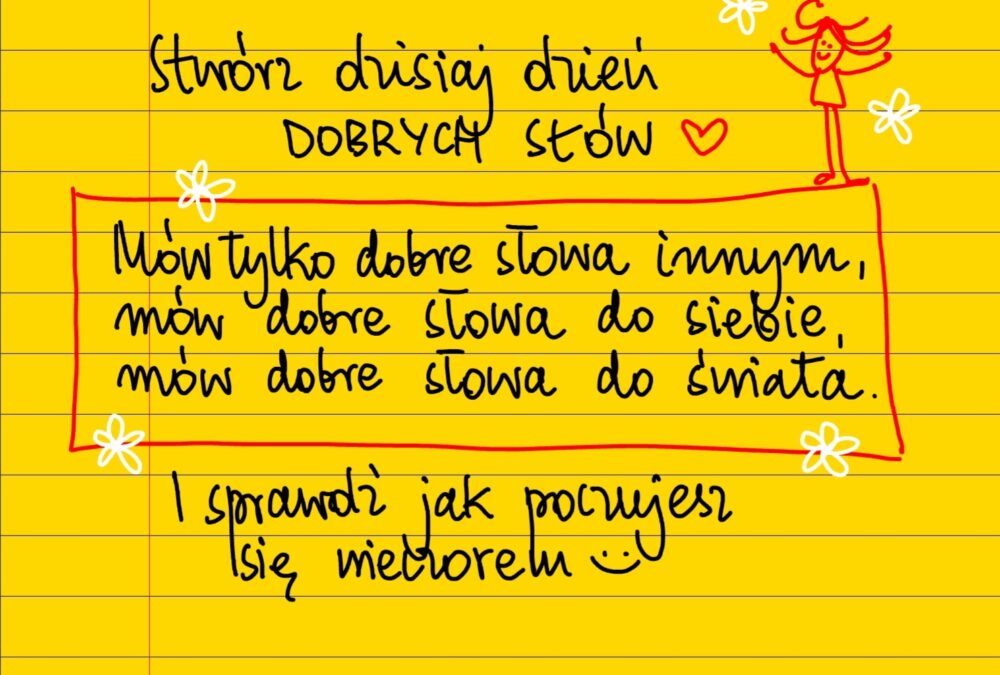 Stwórz dzisiaj dzień
DOBRYCH SŁÓW
Mów tylko dobre słowa innym,
mów dobre słowa do siebie,
mów dobre słowa do świata.
I sprawdź jak poczujesz
się wieczorem